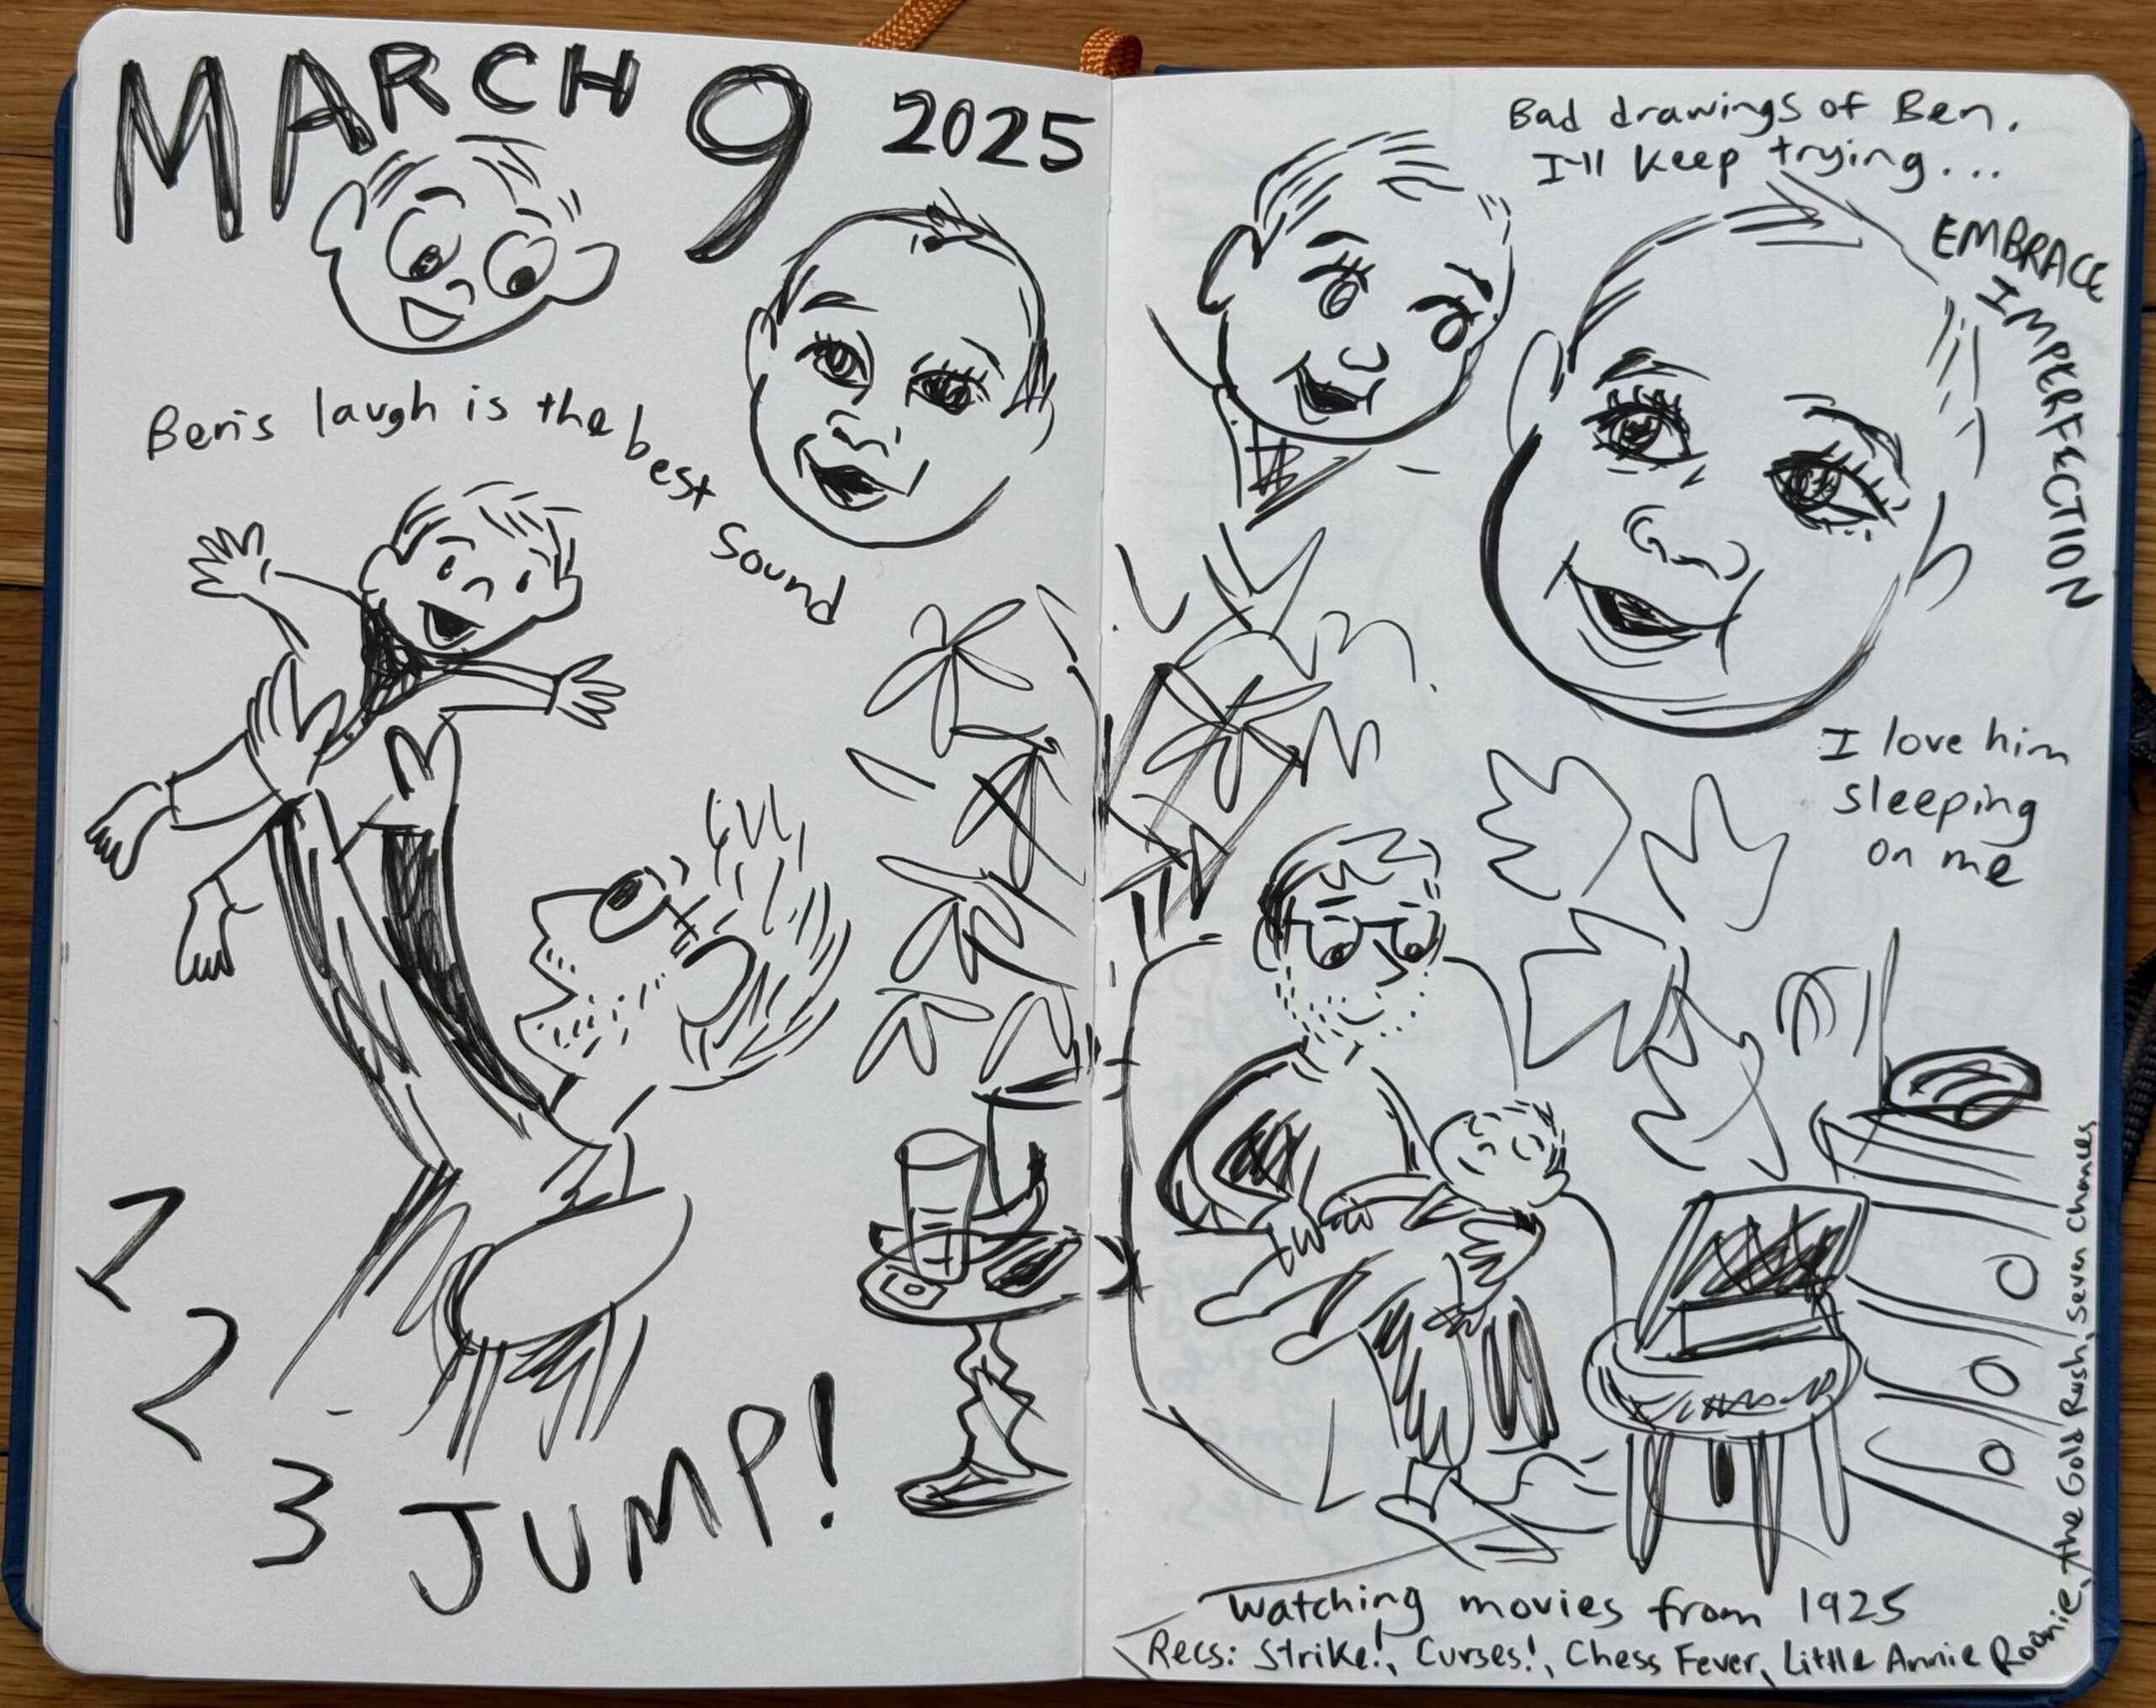 MARCH 9 2025
Ben's laugh is the best sound
1
2
3 JUMP!
Bad drawings of Ben.
I'll keep trying...
EMBRACE
IMPERFECTION
I love him
sleeping
on me
Watching movies from 1925
Recs: Strike!, Curses!, Chess Fever, Little Annie Roonie, the Gold Rush, Seven Chances